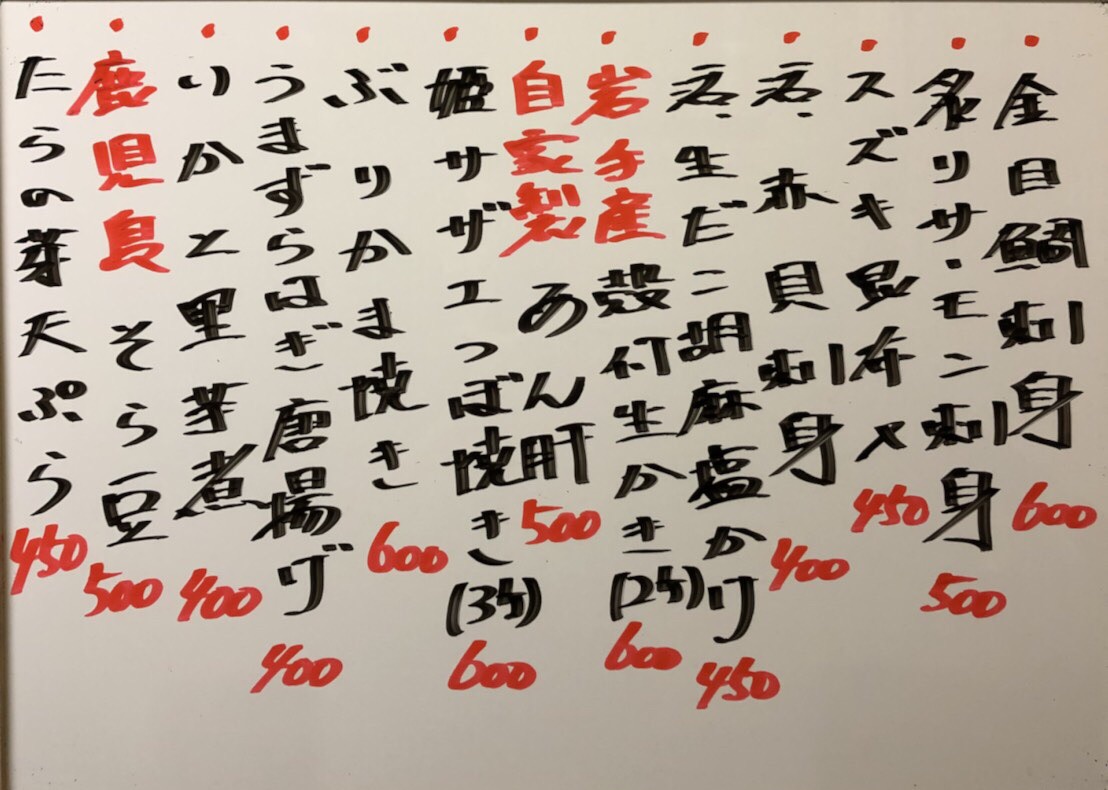 金目鯛刺身 600
炙りサーモン刺身 500
スズキ昆布〆 450
赤貝刺身 400
生だこ胡麻塩かけ 450
岩手産 殻付生かき(2ケ) 600
自家製 あん肝 500
姫サザエつぼ焼き(3ケ) 600
ぶりかま焼き 600
うまずらはぎ唐揚げ 400
いかと里芋煮 400
鹿児島 そら豆 500
たらの芽天ぷら 450